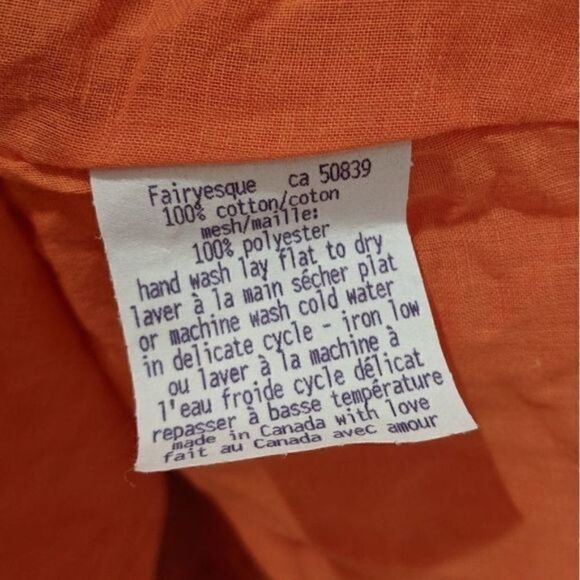 Fairyesque ca 50839
100% cotton/coton
mesh/maille:
100% polyester
hand wash lay flat to dry
laver à la main sécher plat
or machine wash cold water
in delicate cycle - iron low
ou laver à la machine à
l'eau froide cycle délicat
repasser à basse température
made in Canada with love
fait au Canada avec amour